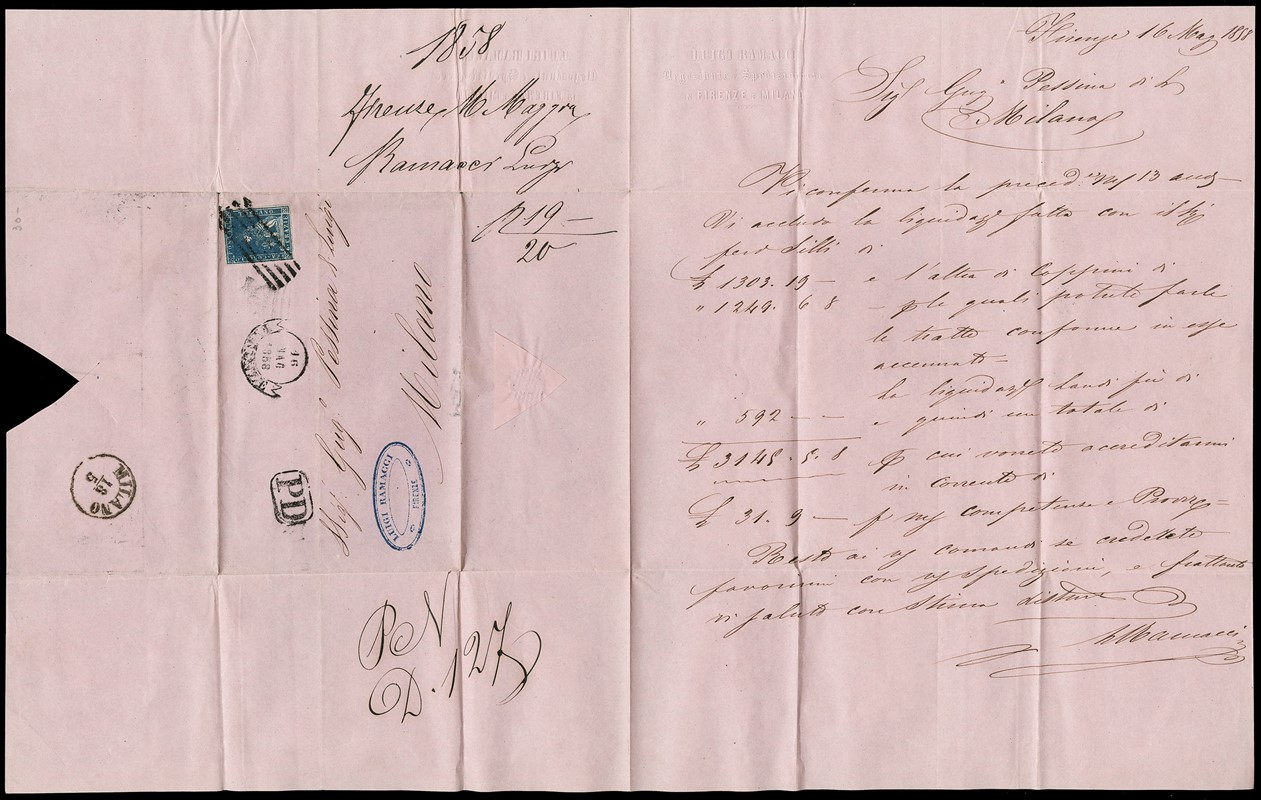 1858
Firenze 16 Maggio
Ramacci Luigi
p 19 —
20
16
MAG
1858
Sig. Giusᵉ Pessina di Luigi
Milano
PD
LUIGI RAMACCI
FIRENZE
MILANO
18
5
PN
D. 127
30-
LUIGI RAMACCI
Commissionario e Speditore
in FIRENZE e MILANO
Firenze 16 Mag 1858
Sig Giusᵉ Pessina di L
Milano
Vi confermo la preced. 13 and
Vi accludo la liquidazᵉ fatta con il Sig
di
£ 1303. 19 — e l'altra di di
" 1249. 6 8 — p le quali potrete farle
le tratte conforme in esse
accennato —
La liquidazᵉ Landi fu di
" 592 — — e quindi un totale di
£ 3145. 5. 8 p cui vorrete accreditarmi
in corrente di
£ 31. 9 — p mie competenze e Provvᵉ =
Resto ai vⁱ comandi se crederete
favorirmi con vᵉ spedizioni, e frattanto
vi saluto con stima distinta
L Ramacci